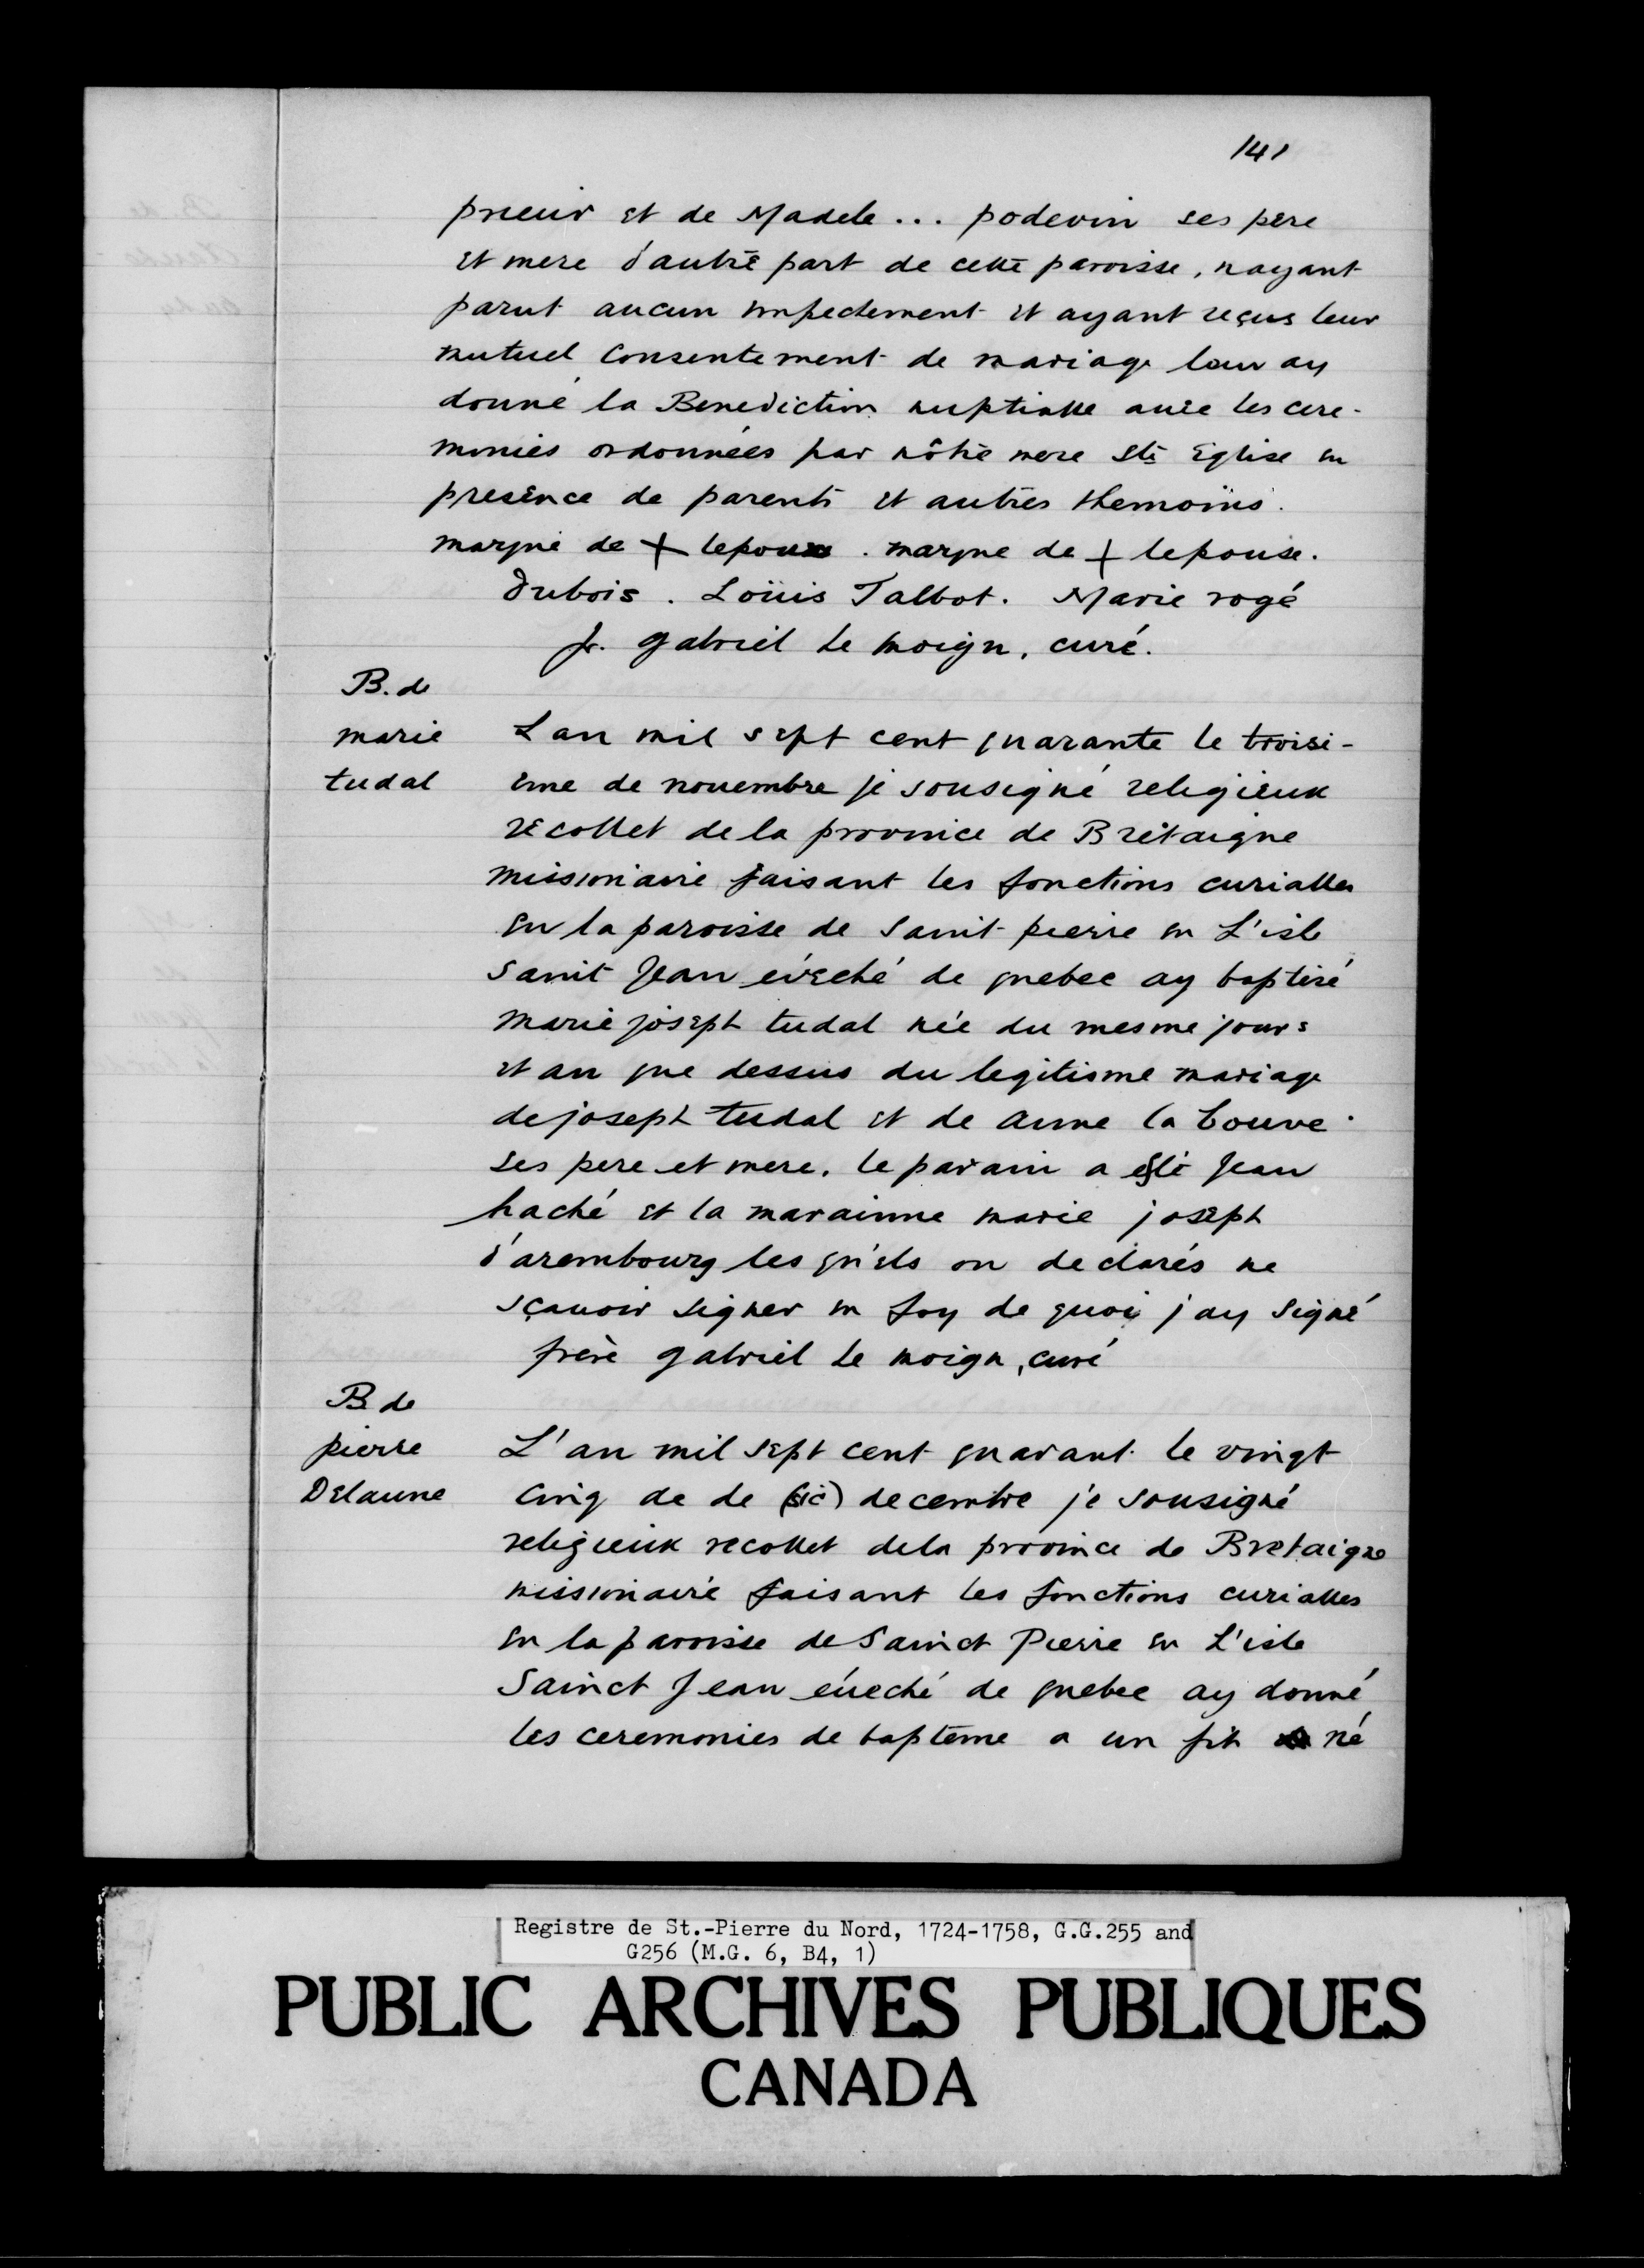 141
prieur et de Madele... podevin ses pere
et mere d'autre part de cette paroisse, nayant
parut aucun empechement et ayant reçus leur
mutuel consentement de mariage leur ay
donné la Benediction nuptialle avec les cere-
monies ordonnées par nôtre mere Ste Eglise en
presence de parents et autres themoins.
marque de + lepoux . marque de + lepouse.
dubois . Loüis Talbot. Marie rogé
fr. gabriel le moign, curé.
B. de
marie
tudal
Lan mil sept cent quarante le troisi-
ème de nouembre je sousigné religieux
recollet de la province de Bretaigne
missionaire faisant les fonctions curialles
en la paroisse de saint pierre en L'isle
saint Jean évéché de quebec ay baptisé
marie joseph tudal née du mesme jour
et an que dessus du legitisme mariage
de joseph tudal et de anne la bouve
ses pere et mere. le parain a esté Jean
haché et la marainne marie joseph
d'arembourg les qu'els on declarés ne
sçauoir signer en foy de quoi j ay signé
frère gabriel le moign, curé
B de
pierre
Delaune
L'an mil sept cent quarant le vingt
cinq de de (sic) decembre je sousigné
religieux recollet dela province de Bretaigne
missionaire faisant les fonctions curialles
en la paroisse de Sainct Pierre en L'isle
Sainct Jean éueché de quebec ay donné
les ceremonies de baptême a un fils né
Registre de St.-Pierre du Nord, 1724-1758, G.G.255 and
G256 (M.G. 6, B4, 1)
PUBLIC ARCHIVES PUBLIQUES
CANADA